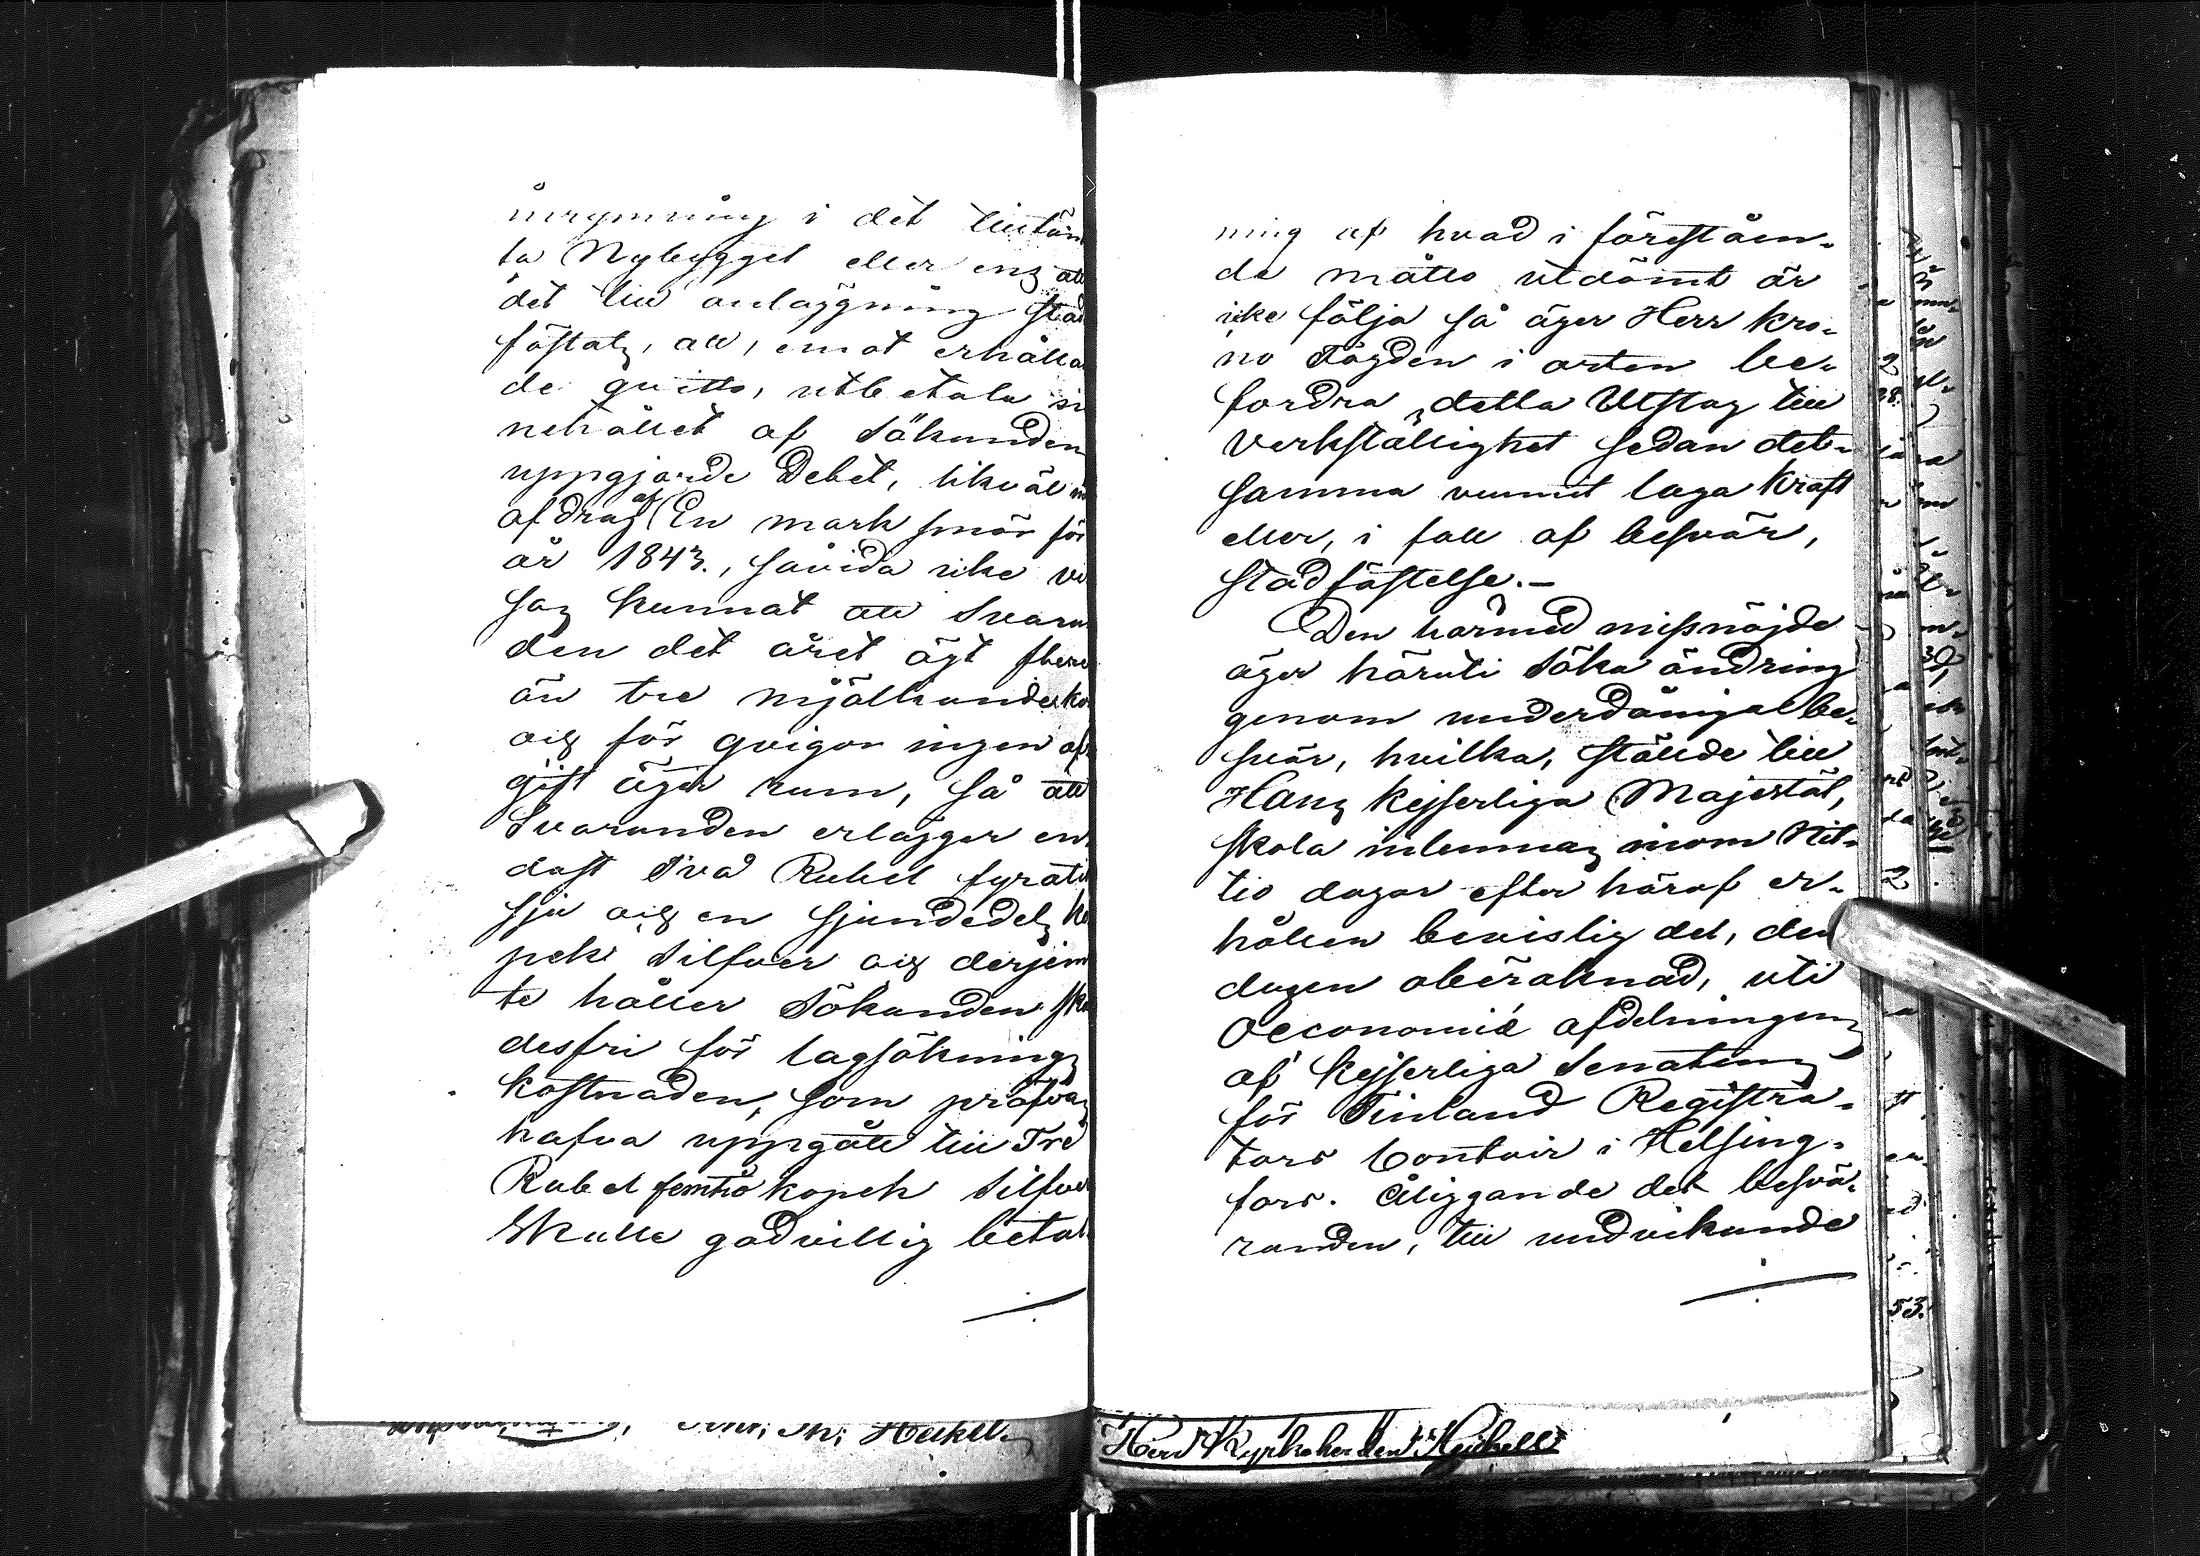 inrymning i det tilltän
ta Nybygget eller ens att
det till anläggning stad
fästats, att, emot erhålla
de qvitto, utbetala in
nehållet af Sökanden
uppgjorde Debet, likväl
afdrag af En mark smör för
år 1843., såvida icke vi
sas kunnat att Svaran
den det året ägt flere
än tre mjölkande ko
och för qvigor ingen af
gift äger rum, så att
Svaranden erlägger en
dast Två Rubel fyratio
sju och en sjundedels ko
pek Silfver och derjem
te håller Sökanden ska
desfri för lagsöknings
kostnaden, som pröfvas
hafva uppgått till Tre
Rubel femtio kopek Silfver
Skulle godvillig betal
ning af hvad i föreståen-
de måtto utdömt är
icke följa så äger Herr Kro-
no Fogden i orten be-
fordra detta Utslag till
Verkställighet sedan det-
samma vunnit laga kraft
eller, i fall af besvär,
stadfästelse.-
Den härmed missnöjde
äger häruti söka ändring
genom underdåniga be-
svär, hvilka, stälde till
Hans Kejserliga Majestät,
skola inlemnas inom Nit-
tio dagar efter häraf er-
hållen bevislig del, den
dagen oberäknad, uti
Oeconomie afdelningens
af Kejserliga Senaten
för Finland Registra-
tors Contoir i Helsing-
fors. Åliggande det besvä-
randen, till undvikande
Heikell
53.